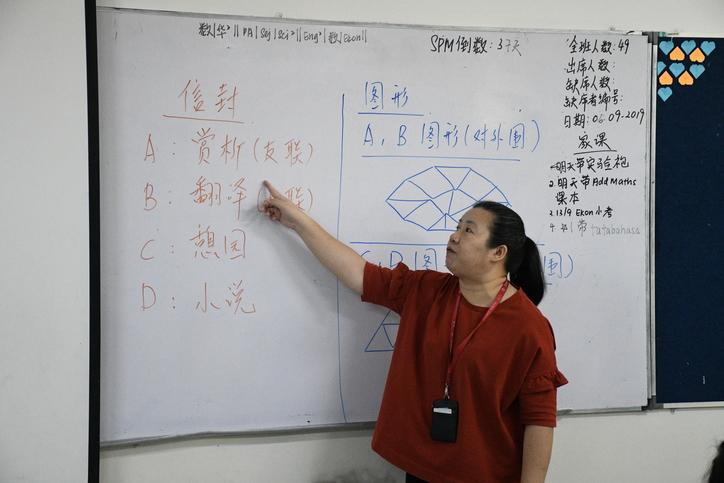 数|华²||PA|Sej|Sci²||Eng²|数|Ekon||
SPM倒数: 37天
信封
A: 赏析(友联)
B: 翻译 联)
C: 憩园
D: 小说
图形
A, B 图形(对外围)
C, D 图 围)
全班人数: 49
出席人数:
缺席人数:
缺席者编号:
日期: 06.09.2019
家课
1.明天带实验袍
2.明天带Add Maths
课本
3.13/9 Ekon小考
4. 带tatabahasa